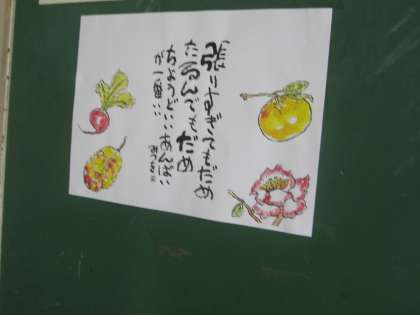 張りすぎてもだめ
たるんでもだめ
ちょうどいいあんばい
が一番いい
みつを